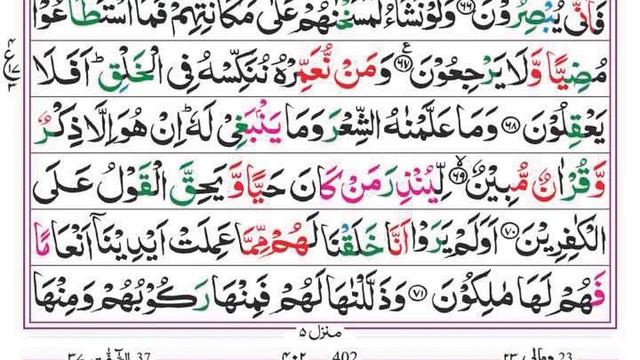 فَاَنّٰى يُبْصِرُوْنَ ﴿۶۶﴾ وَلَوْ نَشَآءُ لَمَسَخْنٰهُمْ عَلٰى مَكَانَتِهِمْ فَمَا اسْتَطَاعُوْا
مُضِيًّا وَّلَا يَرْجِعُوْنَ ﴿۶۷﴾ وَمَنْ نُّعَمِّرْهُ نُنَكِّسْهُ فِى الْخَلْقِ ؕ اَفَلَا
يَعْقِلُوْنَ ﴿۶۸﴾ وَمَا عَلَّمْنٰهُ الشِّعْرَ وَمَا يَنْۢبَغِىْ لَهٗ ؕ اِنْ هُوَ اِلَّا ذِكْرٌ
وَّقُرْاٰنٌ مُّبِيْنٌ ﴿۶۹﴾ لِّيُنْذِرَ مَنْ كَانَ حَيًّا وَّيَحِقَّ الْقَوْلُ عَلَى
الْكٰفِرِيْنَ ﴿۷۰﴾ اَوَلَمْ يَرَوْا اَنَّا خَلَقْنَا لَهُمْ مِّمَّا عَمِلَتْ اَيْدِيْنَاۤ اَنْعَامًا
فَهُمْ لَهَا مٰلِكُوْنَ ﴿۷۱﴾ وَذَلَّلْنٰهَا لَهُمْ فَمِنْهَا رَكُوْبُهُمْ وَمِنْهَا
منزل ۵
37 الصّٰٓفّٰت ۳۷ 402 ۴۰۲ 23 ومالى ۲۳